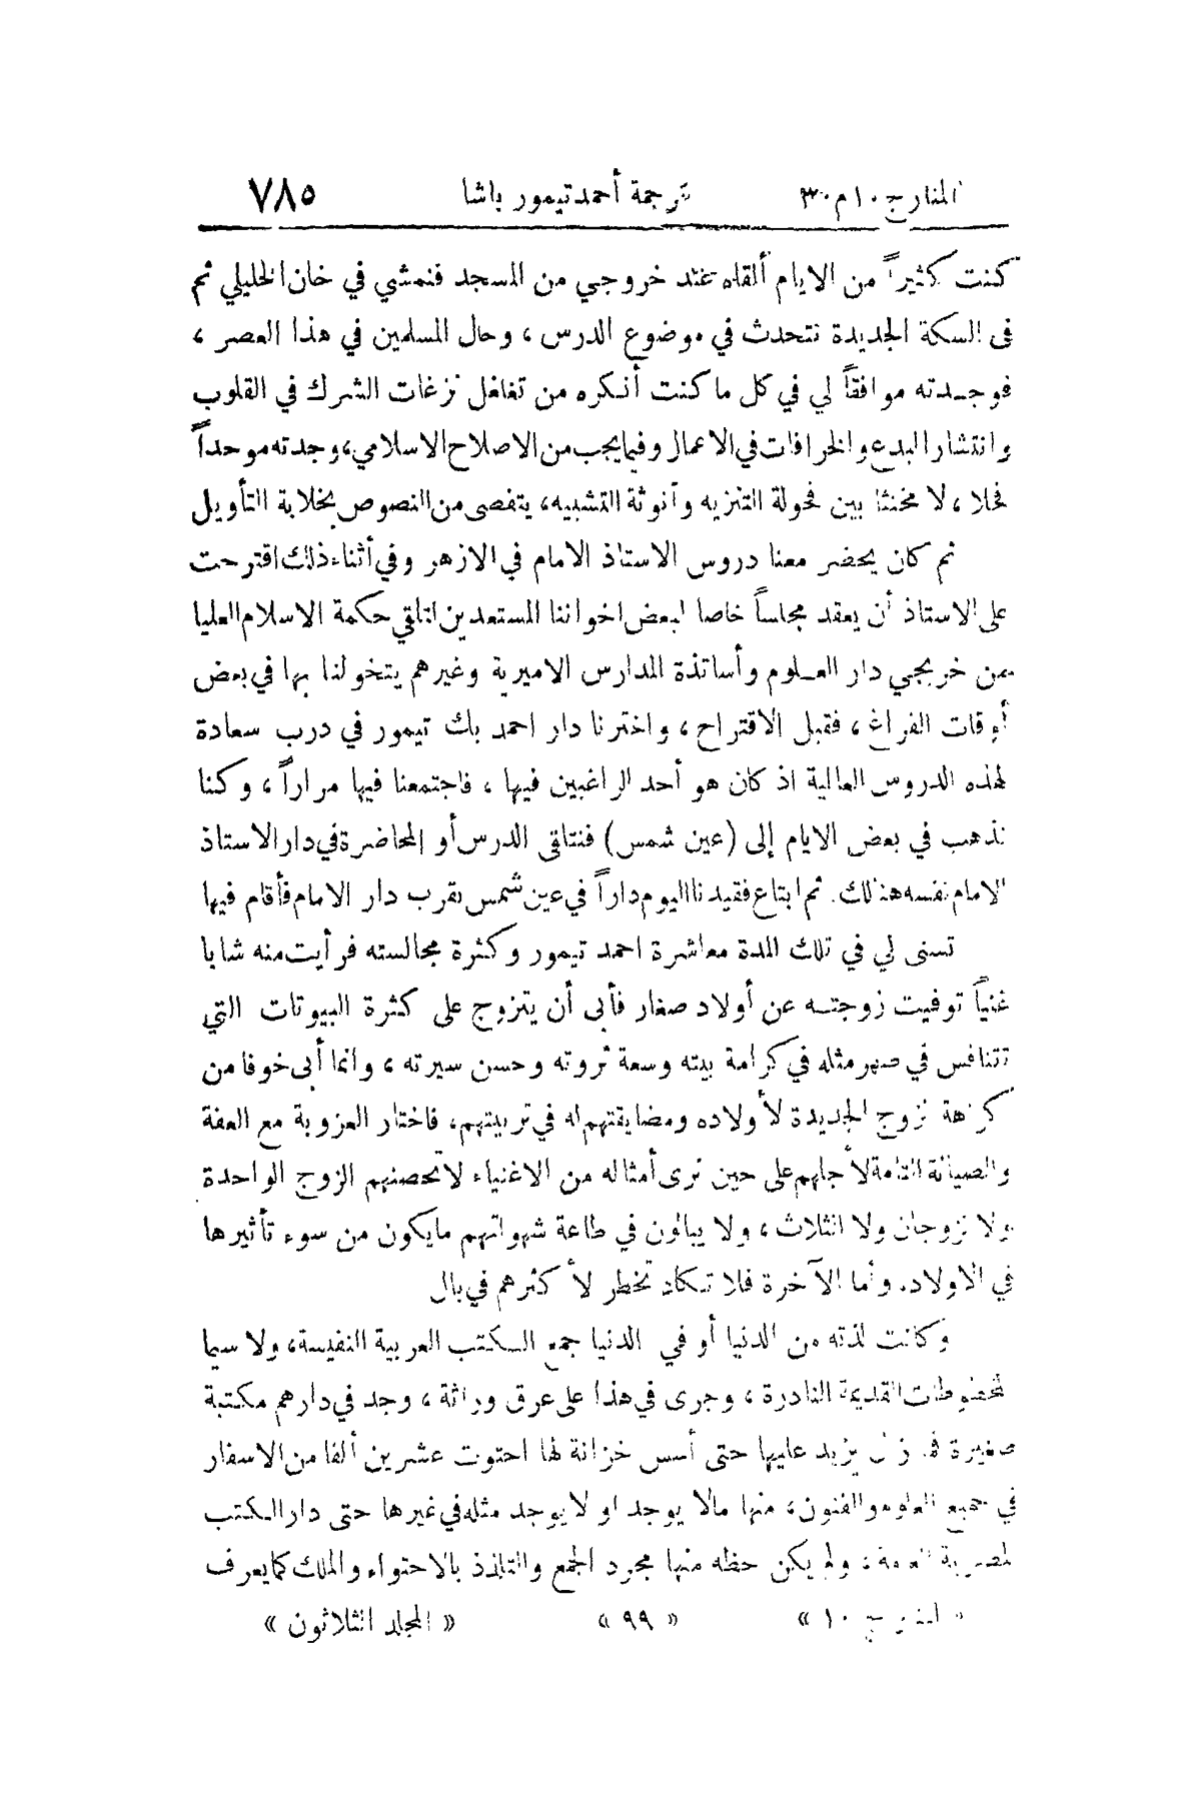 المنار ج ١٠ م ٣٠ ترجمة أحمد تيمور باشا ٧٨٥
كنت كثيراً من الايام ألقاه عند خروجي من المسجد فنمشي في خان الخليلي ثم
في السكة الجديدة نتحدث في موضوع الدرس ، وحال المسلمين في هذا العصر ،
فوجدته موافقاً لي في كل ما كنت أنكره من تغلغل نزغات الشرك في القلوب
وانتشار البدع والخرافات في الاعمال وفيما يجب من الاصلاح الاسلامي، وجدته موحداً
فحلا ، لا مخنثا بين فحولة التنزيه وأنوثة التشبيه، يتفصى من النصوص بخلابة التأويل
ثم كان يحضر معنا دروس الاستاذ الامام في الازهر وفي أثناء ذلك اقترحت
على الاستاذ أن يعقد مجلساً خاصا لبعض اخواننا المستعدين لتلقي حكمة الاسلام العليا
من خريجي دار العلوم وأساتذة المدارس الاميرية وغيرهم يتخولنا بها في بعض
أوقات الفراغ ، فقبل الاقتراح ، واخترنا دار احمد بك تيمور في درب سعادة
لهذه الدروس العالية اذ كان هو أحد الراغبين فيها ، فاجتمعنا فيها مراراً ، وكنا
نذهب في بعض الايام إلى (عين شمس) فنتلقى الدرس أو المحاضرة في دار الاستاذ
الامام نفسه هنالك. ثم ابتاع فقيدنا اليوم داراً في عين شمس بقرب دار الامام فأقام فيها
تسنى لي في تلك المدة معاشرة احمد تيمور وكثرة مجالسته فرأيت منه شابا
غنياً توفيت زوجته عن أولاد صغار فأبى أن يتزوج على كثرة البيوتات التي
تتنافس في صهر مثله في كرامة بيته وسعة ثروته وحسن سيرته ، وانما أبى خوفا من
كراهة الزوج الجديدة لأولاده ومضايقتهم له في تربيتهم، فاختار العزوبة مع العفة
والصيانة التامة لأجلهم على حين نرى أمثاله من الاغنياء لا تحصنهم الزوج الواحدة
ولا الزوجان ولا الثلاث ، ولا يبالون في طاعة شهواتهم ما يكون من سوء تأثيرها
في الاولاد. وأما الآخرة فلا تكاد تخطر لأكثرهم في بال
وكانت لذته من الدنيا أو في الدنيا جمع الكتب العربية النفيسة، ولا سيما
المخطوطات القديمة النادرة ، وجرى في هذا على عرق وراثة ، وجد في دارهم مكتبة
صغيرة فما زال يزيد عليها حتى أسس خزانة لها احتوت عشرين ألفا من الاسفار
في جميع العلوم والفنون، منها مالا يوجد او لا يوجد مثله في غيرها حتى دار الكتب
المصرية العامة ، ولم يكن حظه منها مجرد الجمع والتلذذ بالاحتواء والملك كما يعرف
« المنار ج ١٠ » « ٩٩ » « المجلد الثلاثون »